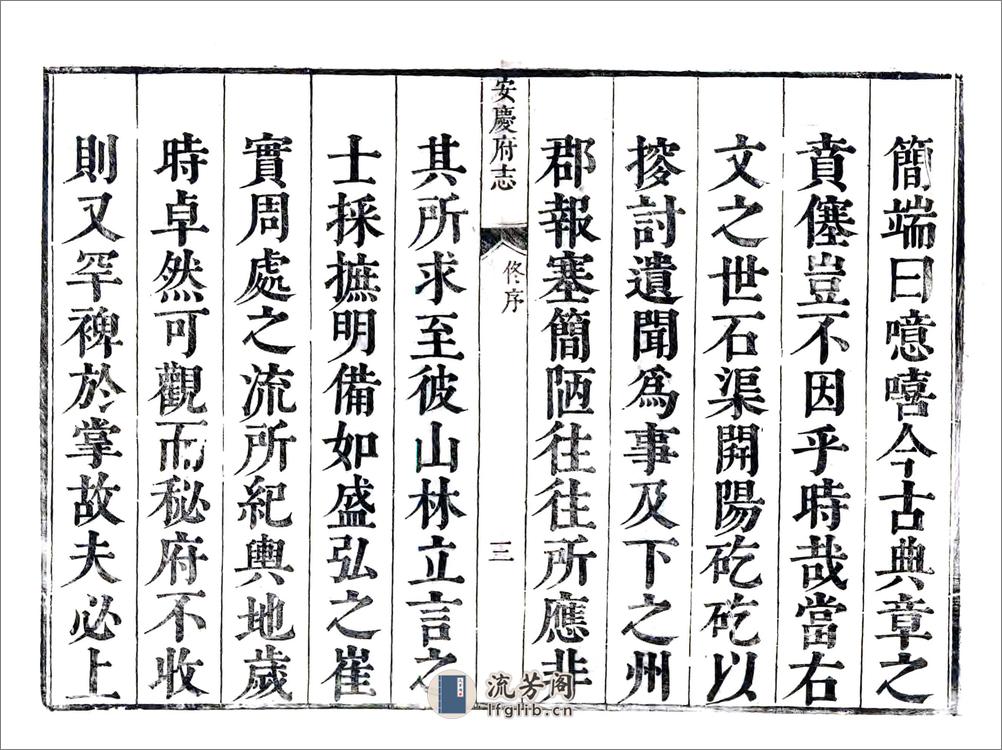 簡端曰噫嘻今古典章之
賁僿豈不因乎時哉當右
文之世石渠開陽矻矻以
搜討遺聞爲事及下之州
郡報塞簡陋往往所應非
安慶府志
佟序
三
其所求至彼山林立言之
士採摭明備如盛弘之崔
實周處之流所紀輿地歲
時卓然可觀而秘府不收
則又罕裨於掌故夫必上
流芳阁
lfglib.cn